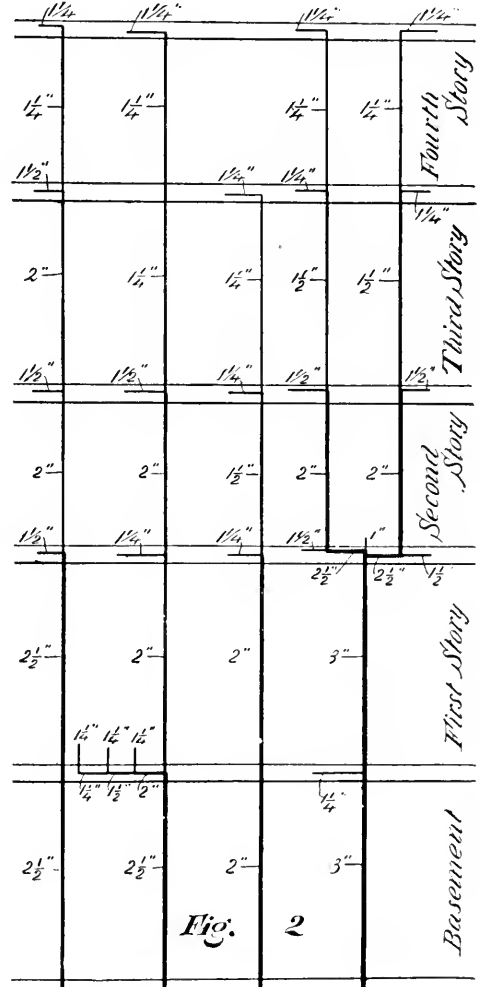 1¼" 1¼" 1¼" 1¼"
1¼" 1¼" 1¼" 1¼" Fourth Story
1½" 1¼" 1¼" 1¼"
2" 1¼" 1¼" 1½" 1½" Third Story
1½" 1½" 1¼" 1½" 1½"
2" 2" 1½" 2" 2" Second Story
1½" 1¼" 1¼" 1½" 1"
2½" 2½" 1½"
2½" 2" 2" 3" First Story
1¼" 1¼" 1¼"
1¼" 1½" 2" 1¼"
2½" 2½" 2" 3" Basement
Fig. 2